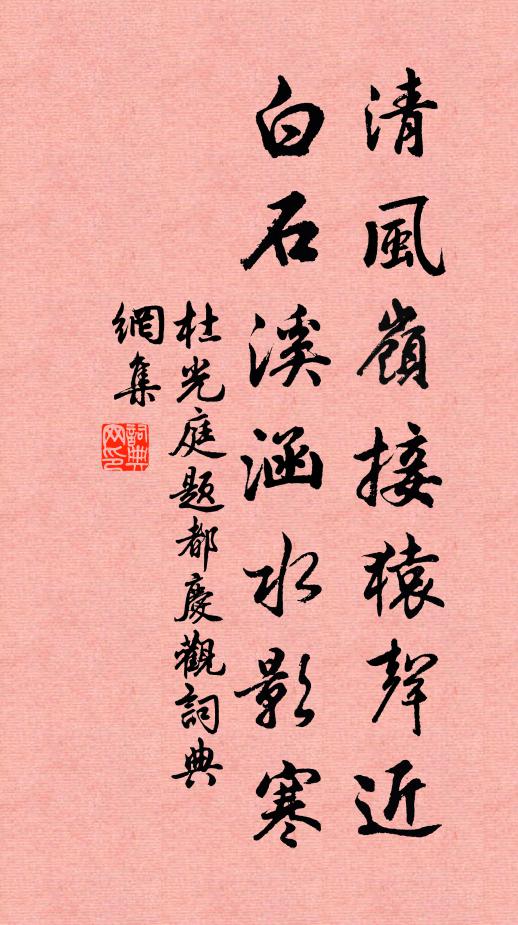 清風嶺接猿聲近
白石溪涵水影寒
杜光庭題都慶觀詞典
網集
詞典
网印